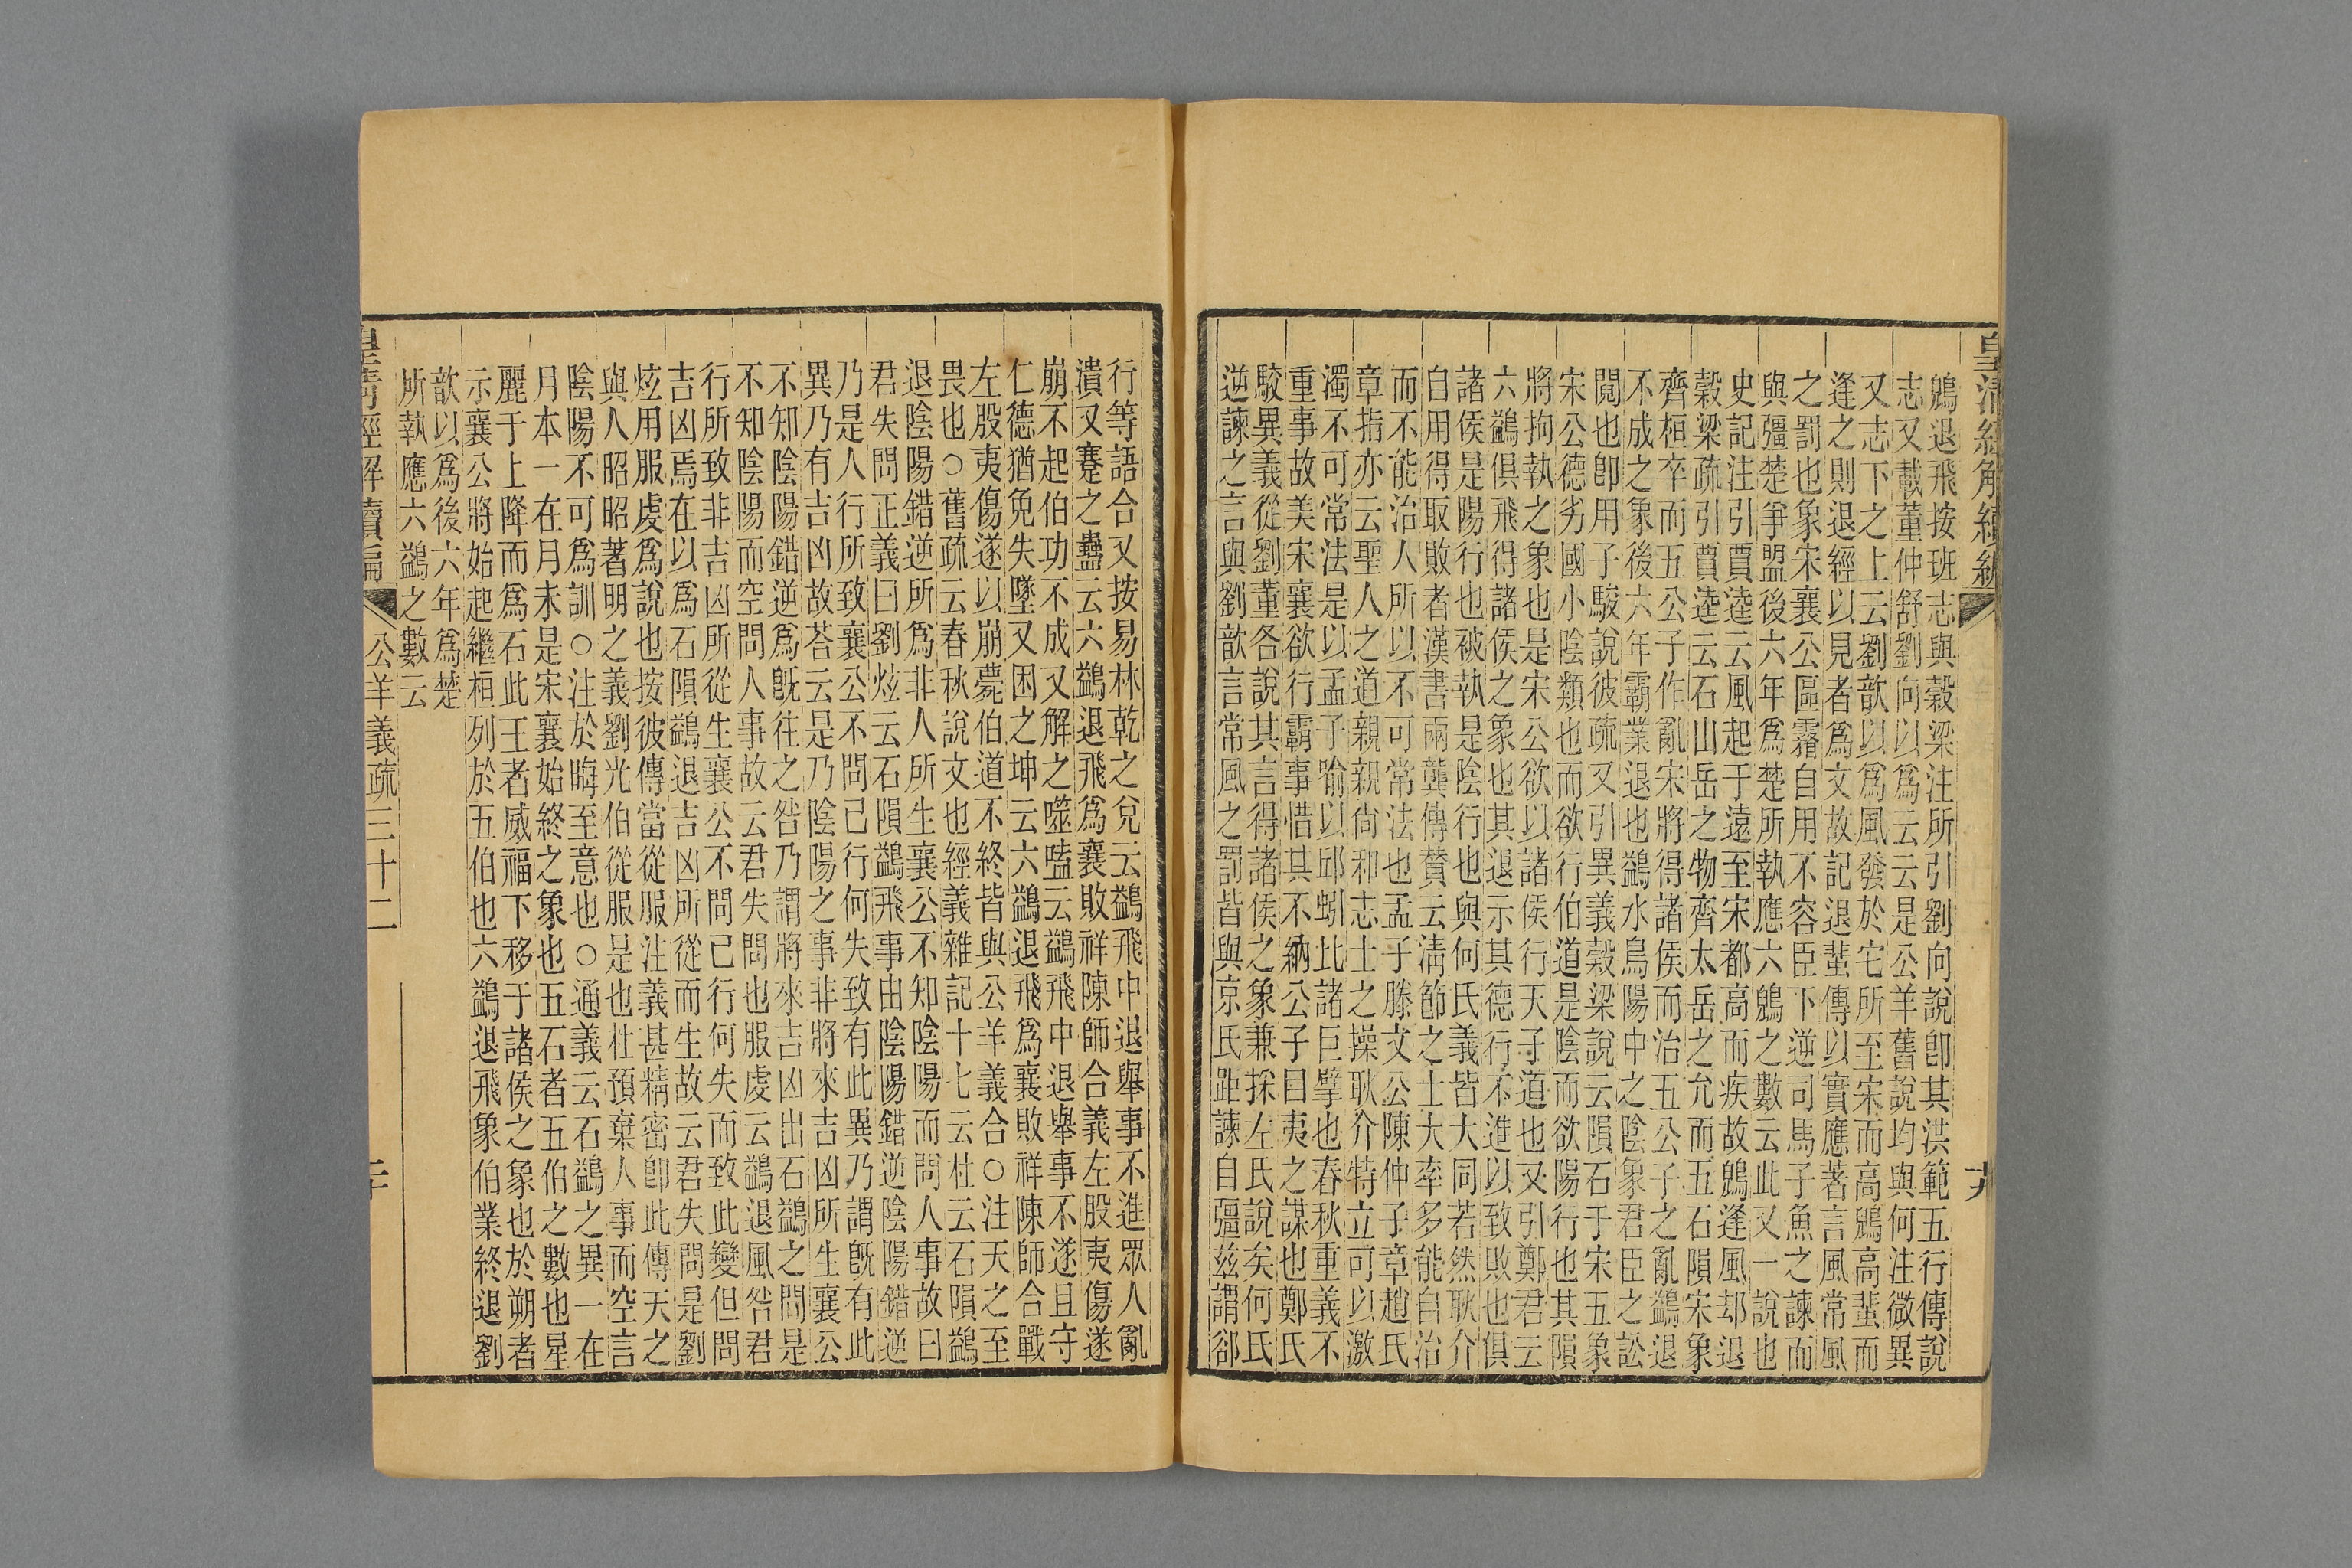 皇清經解續編
十九
鶂退飛按班志與穀梁注所引劉向說卽其洪範五行傳說
志又載董仲舒劉向以爲云云是公羊舊說均與何注微異
又志下之上云劉歆以爲風發於宅所至宋而高鶂高蜚而
逢之則退經以見者爲文故記退蜚傳以實應著言風常風
之罰也象宋襄公區霿自用不容臣下逆司馬子魚之諫而
與彊楚爭盟後六年爲楚所執應六鶂之數云此又一說也
史記注引賈逵云風起于遠至宋都高而疾故鶂逢風却退
穀梁疏引賈逵云石山岳之物齊太岳之允而五石隕宋象
齊桓卒而五公子作亂宋將得諸侯而治五公子之亂鷁退
不成之象後六年霸業退也鷁水鳥陽中之陰象君臣之訟
鬩也卽用子駿說彼疏又引異義穀梁說云隕石于宋五象
宋公德劣國小陰類也而欲行伯道是陰而欲陽行也其隕
將拘執之象也是宋公欲以諸侯行天子道也又引鄭君云
六鷁俱飛得諸侯之象也其退示其德行不進以致敗也俱
諸侯是陽行也被執是陰行也與何氏義皆大同若然耿介
自用得取敗者漢書兩龔傳贊云清節之士大率多能自治
而不能治人所以不可常法也孟子滕文公陳仲子章趙氏
章指亦云聖人之道親親尚和志士之操耿介特立可以激
濁不可常法是以孟子喻以邱蚓比諸巨擘也春秋重義不
重事故美宋襄欲行霸事惜其不納公子目夷之謀也鄭氏
駮異義從劉董各說其言得諸侯之象兼採左氏說矣何氏
逆諫之言與劉歆言常風之罰皆與京氏距諫自彊茲謂郤
行等語合又按易林乾之兌云鷁飛中退舉事不進眾人亂
潰又蹇之蠱云六鷁退飛爲襄敗祥陳師合義左股夷傷遂
崩不起伯功不成又解之噬嗑云鷁飛中退舉事不遂且守
仁德猶免失墜又困之坤云六鷁退飛爲襄敗祥陳師合戰
左股夷傷遂以崩薨伯道不終皆與公羊義合○注天之至
畏也○舊疏云春秋說文也經義雜記十七云杜云石隕鷁
退陰陽錯逆所爲非人所生襄公不知陰陽而問人事故曰
君失問正義曰劉炫云石隕鷁飛事由陰陽錯逆陰陽錯逆
乃是人行所致襄公不問己行何失致有此異乃謂旣有此
異乃有吉凶故荅云是乃陰陽之事非將來吉凶所生襄公
不知陰陽錯逆爲旣往之咎乃謂將來吉凶出石鷁之間是
不知陰陽而空問人事故云君失問也服虔云鷁退風咎君
行所致非吉凶所從生襄公不問己行何失而致此變但問
吉凶焉在以爲石隕鷁退吉凶所從而生故云君失問是劉
炫用服虔爲說也按彼傳當從服注義甚精密卽此傳天之
與人昭昭著明之義劉光伯從服是也杜預棄人事而空言
陰陽不可爲訓○注於晦至意也○通義云石鷁之異一在
月本一在月末是宋襄始終之象也五石者五伯之數也星
麗于上降而爲石此王者威福下移于諸侯之象也於朔者
示襄公將始起繼桓列於五伯也六鷁退飛象伯業終退劉
歆以爲後六年爲楚
所執應六鷁之數云
皇清經解續編
公羊義疏三十二
二十